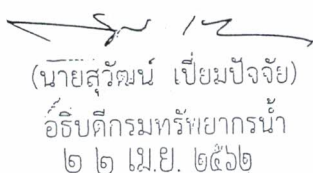 (นายสุวัฒน์ เปี่ยมปัจจัย)
อธิบดีกรมทรัพยากรน้ำ
๒ ๒ เม.ย. ๒๕๖๒